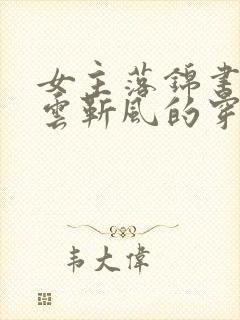 女主落錦書
雲靳風的穿
韦大偉